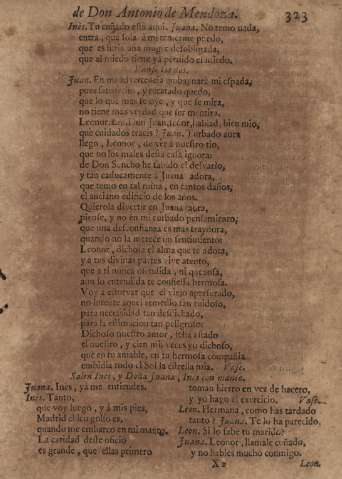 de Don Antonio de Mendoza. 323
Ines. Tu cuñado está aqui. Juana. No temo nada,
entra, que sola à mis
que es una muger desobligada,
que al miedo tiene ya perdido el miedo.
Vanse las dos.
Juan. En mi espada,
pues satisfecho, y recatado quedo,
que lo que mas se oye, y que se mira,
no tiene mas verdad que ser mentira.
Leonor. señor, bien mio,
que cuidados traeis? Juan. Turbado aora
llego, Leonor, de ver à nuestro tio,
que no los males desta casa ignora:
de Don Sancho he sabido el
y tan caducamente à Juana adora,
que temo en tal ruina, en tantos daños,
el anciano edificio de los años.
Quierola divertir en Juana aora,
piense, y no en mi turbado pensamiento,
que una desconfiança es mas traydora,
quando no la merece un sentimiento
Leonor, dichosa el alma que te adora,
y à tus divinas partes vive atento,
que à ti nunca ofendida, ni quexosa,
aun lo entendida te confiessa hermosa.
Voy à estorvar que el viejo apresurado,
no intente aquel remedio tan ruidoso,
para necessidad tan desdichado,
para la estimacion tan peligroso:
Dichoso nuestro amor,
el nuestro, y cien mil veces yo dichoso,
que en tu amable, en tu hermosa compañia
embidia todo el Sol la estrella mia. Vase.
Salen Ines, y Doña Juana, Ines con manto.
Juana. Ines, yà me entiendes.
Ines. Tanto,
que voy luego, y à mis pies,
Madrid chico golfo es,
quando me embarco en mi manto.
La caridad deste oficio
es grande, que ellas primero
toman hazero en vez de hacero,
y yo hago el exercicio. Vase.
Leon. Hermana, como has tardado
tanto? Juana. Te lo ha parecido.
Leon. Si lo sabe tu marido?
Juana. Leonor, llamale cuñado,
y no hables mucho conmigo.
X 2 Leon.